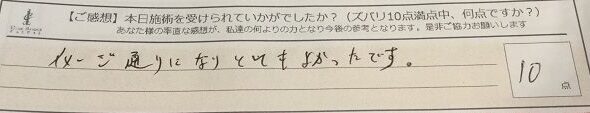 【ご感想】本日施術を受けられていかがでしたか？（ズバリ10点満点中、何点ですか？）
あなた様の率直な感想が、私達の何よりの力となり今後の参考となります。是非ご協力お願いします
イメージ通りになりとてもよかったです。
10
点